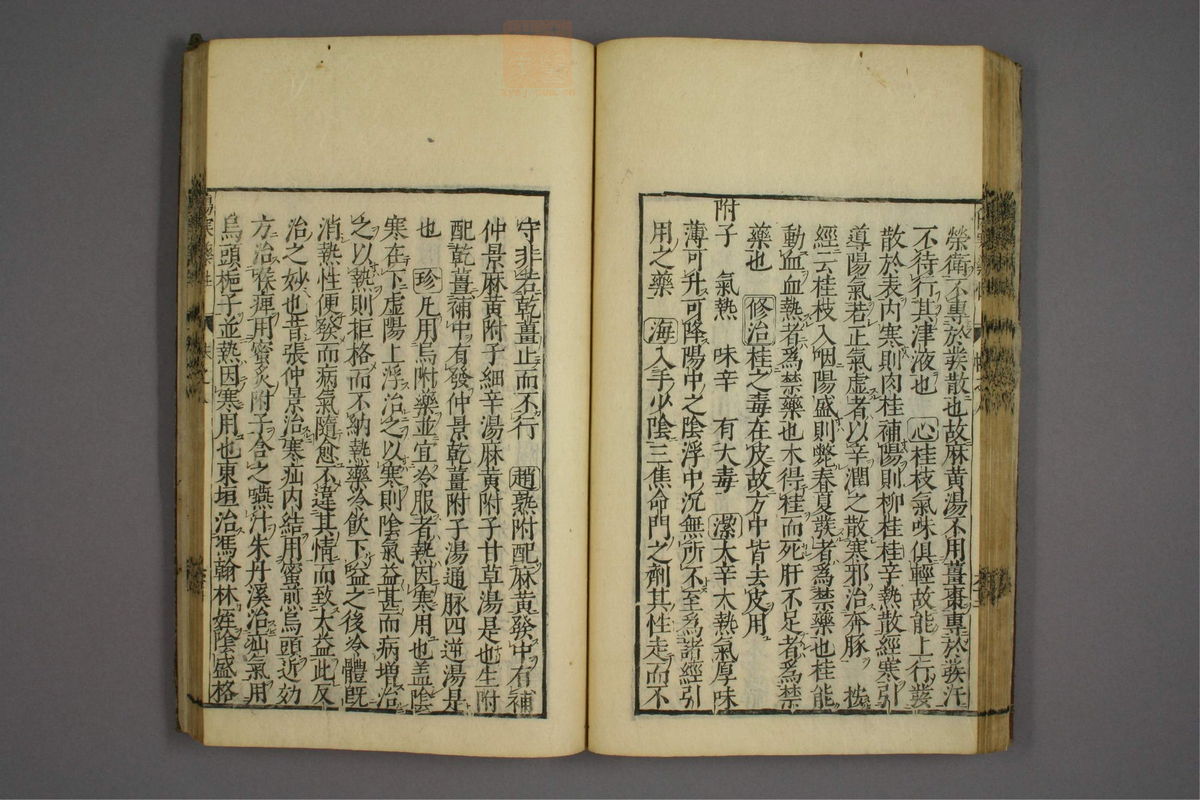 榮衛不專於發散也故麻黃湯不用薑棗專於發汗
不待行其津液也 心桂枝氣味俱輕故能上行發
散於表內寒則肉桂補陽則柳桂桂辛熱散經寒引
導陽氣若正氣虛者以辛潤之散寒邪治奔豚
經云桂枝入咽陽盛則斃春夏發者爲禁藥也桂能
動血血熱者爲禁藥也木得桂而死肝不足者爲禁
藥也 修治桂之毒在皮故方中皆去皮用
附子 氣熱 味辛 有大毒 潔大辛大熱氣厚味
薄可升可降陽中之陰浮中沉無所不至爲諸經引
用之藥 海入手少陰三焦命門之劑其性走而不
守非若乾薑止而不行 趙熟附配麻黃發中有補
仲景麻黃附子細辛湯麻黃附子甘草湯是也生附
配乾薑補中有發仲景乾薑附子湯通脉四逆湯是
也 珍凡用烏附藥並宜冷服者熱因寒用也蓋陰
寒在下虛陽上浮治之以寒則陰氣益甚而病增治
之以熱則拒格而不納熱藥冷飲下嗌之後冷體旣
消熱性便發而病氣隨愈不違其情而致大益此反
治之妙也昔張仲景治寒疝內結用蜜煎烏頭近効
方治喉痺用蜜炙附子含之嚥汁朱丹溪治疝氣用
烏頭梔子並熱因寒用也東垣治馮翰林姪陰盛格